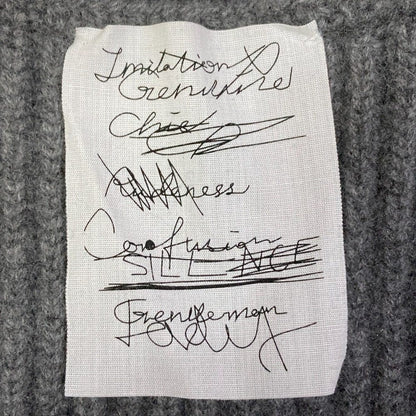 Imitation
Genuine
Chic
Confusion
SILENCE
Gentleman